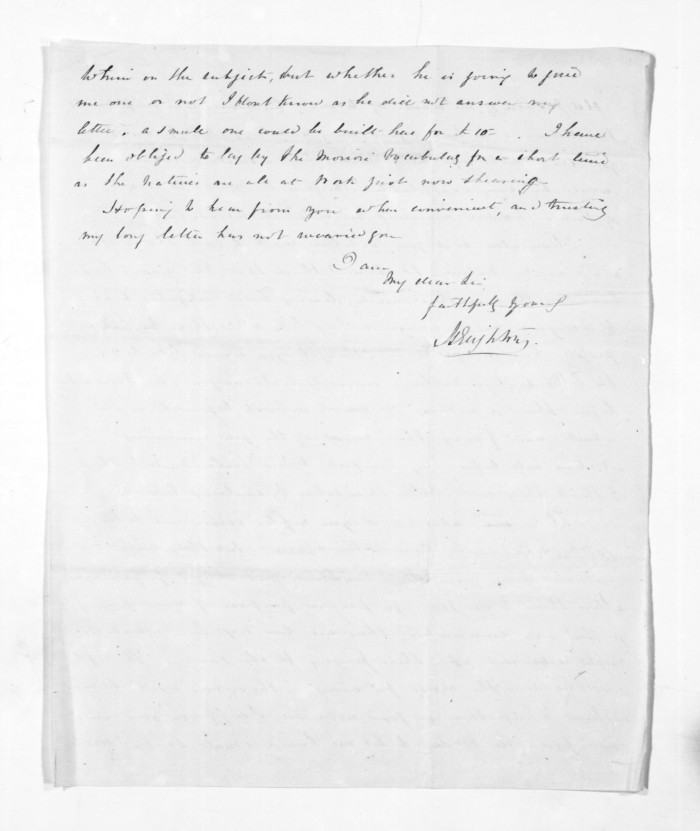 to him on the subject, but whether he is going to give
me one or not I dont know as he did not answer my
letter, a small one could be built here for £10. I have
been obliged to lay by the Moriori Vocabulary for a short time
as the natives are all at work just now shearing
Hoping to hear from you when convenient, and trusting
my long letter has not wearied you
I am
My dear Sir
faithfully yours
Deighton.